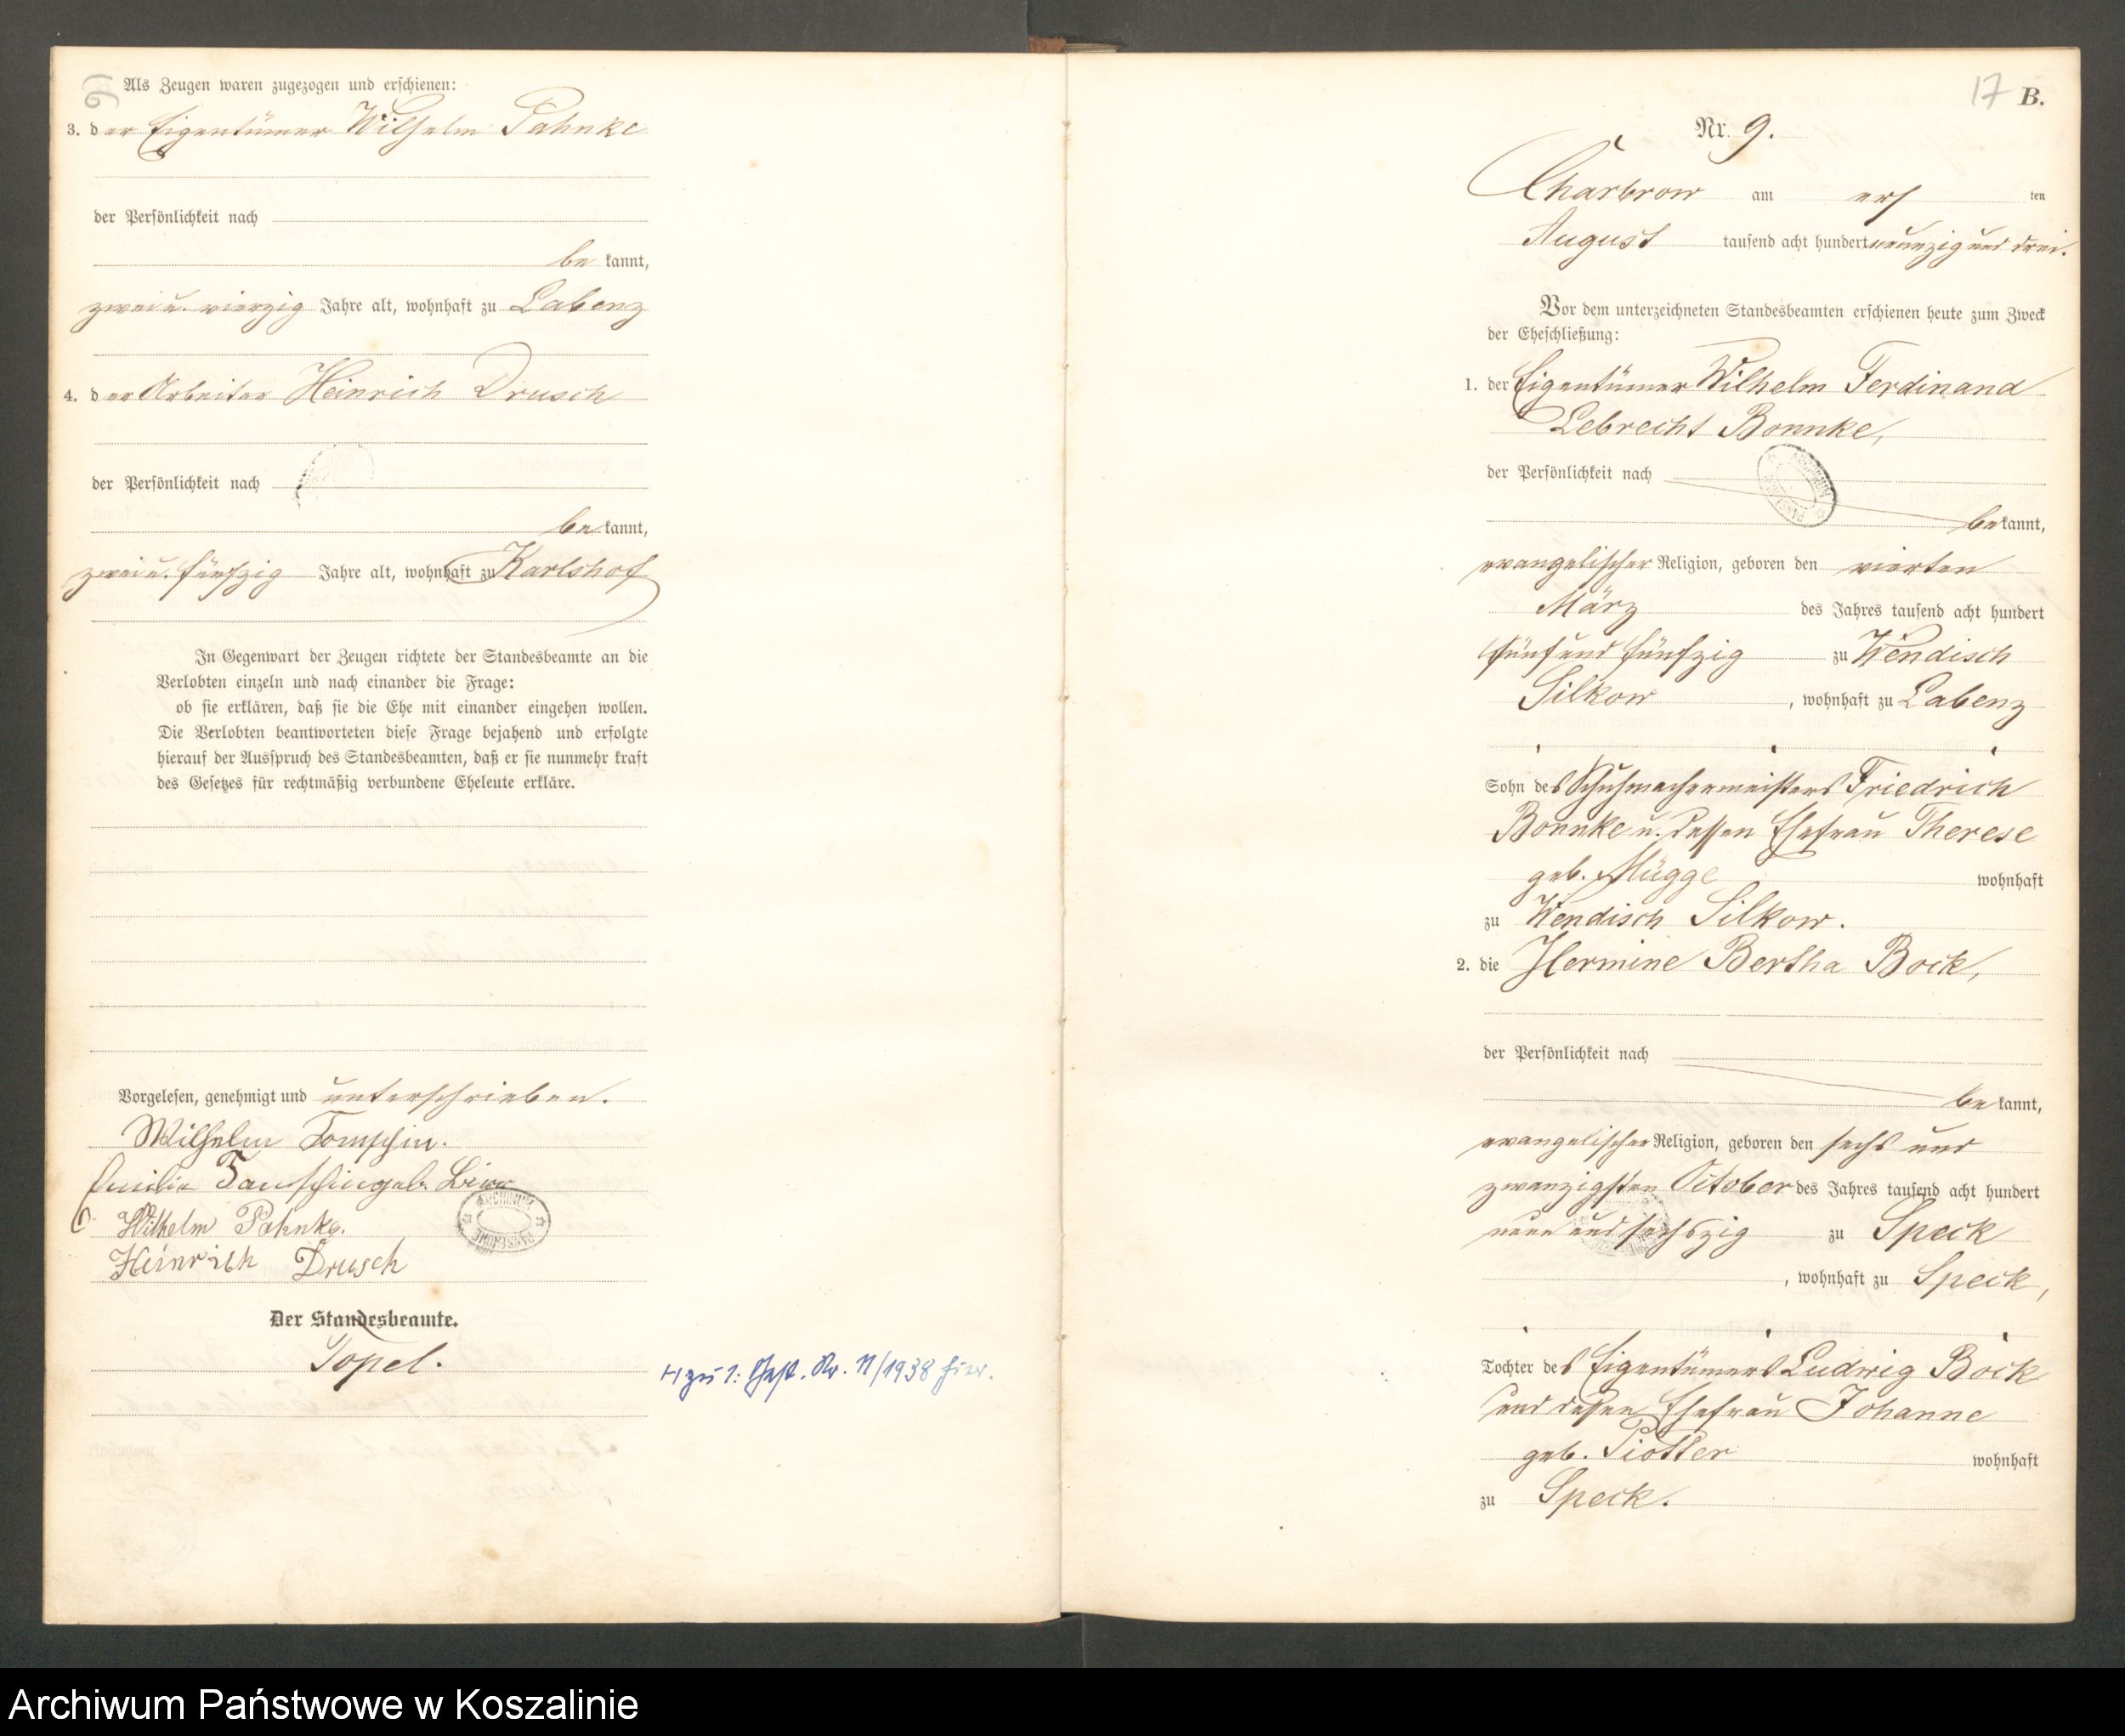 Als Zeugen waren zugezogen und erschienen:
3. der Eigentümer Wilhelm Pahnke
der Persönlichkeit nach
bekannt,
zwei u. vierzig Jahre alt, wohnhaft zu Labenz
4. der Arbeiter Heinrich Drusch
der Persönlichkeit nach
bekannt,
zwei u. fünfzig Jahre alt, wohnhaft zu Karlshof
In Gegenwart der Zeugen richtete der Standesbeamte an die
Verlobten einzeln und nach einander die Frage:
ob sie erklären, daß sie die Ehe mit einander eingehen wollen.
Die Verlobten beantworteten diese Frage bejahend und erfolgte
hierauf der Ausspruch des Standesbeamten, daß er sie nunmehr kraft
des Gesetzes für rechtmäßig verbundene Eheleute erkläre.
Vorgelesen, genehmigt und unterschrieben.
Wilhelm
Emilie geb.
Wilhelm Pahnke.
Heinrich Drusch
Der Standesbeamte.
Topel.
zu 1: Nr. 11/1938 hier.
17 B.
Nr. 9.
Charbrow am ersten
August tausend acht hundert neunzig und drei.
Vor dem unterzeichneten Standesbeamten erschienen heute zum Zweck
der Eheschließung:
1. der Eigentümer Wilhelm Ferdinand
Lebrecht Bonnke,
der Persönlichkeit nach
bekannt,
evangelischer Religion, geboren den vierten
März des Jahres tausend acht hundert
fünf und fünfzig zu Wendisch
Silkow, wohnhaft zu Labenz
Sohn des Schuhmachermeisters Friedrich
Bonnke u. dessen Ehefrau Therese
geb. Mügge wohnhaft
zu Wendisch Silkow.
2. die Hermine Bertha Bock,
der Persönlichkeit nach
bekannt,
evangelischer Religion, geboren den sechs und
zwanzigsten October des Jahres tausend acht hundert
neun und sechszig zu Speck
, wohnhaft zu Speck,
Tochter des Eigentümers Ludwig Bock
und dessen Ehefrau Johanne
geb. Piotter wohnhaft
zu Speck.
Archiwum Państwowe w Koszalinie